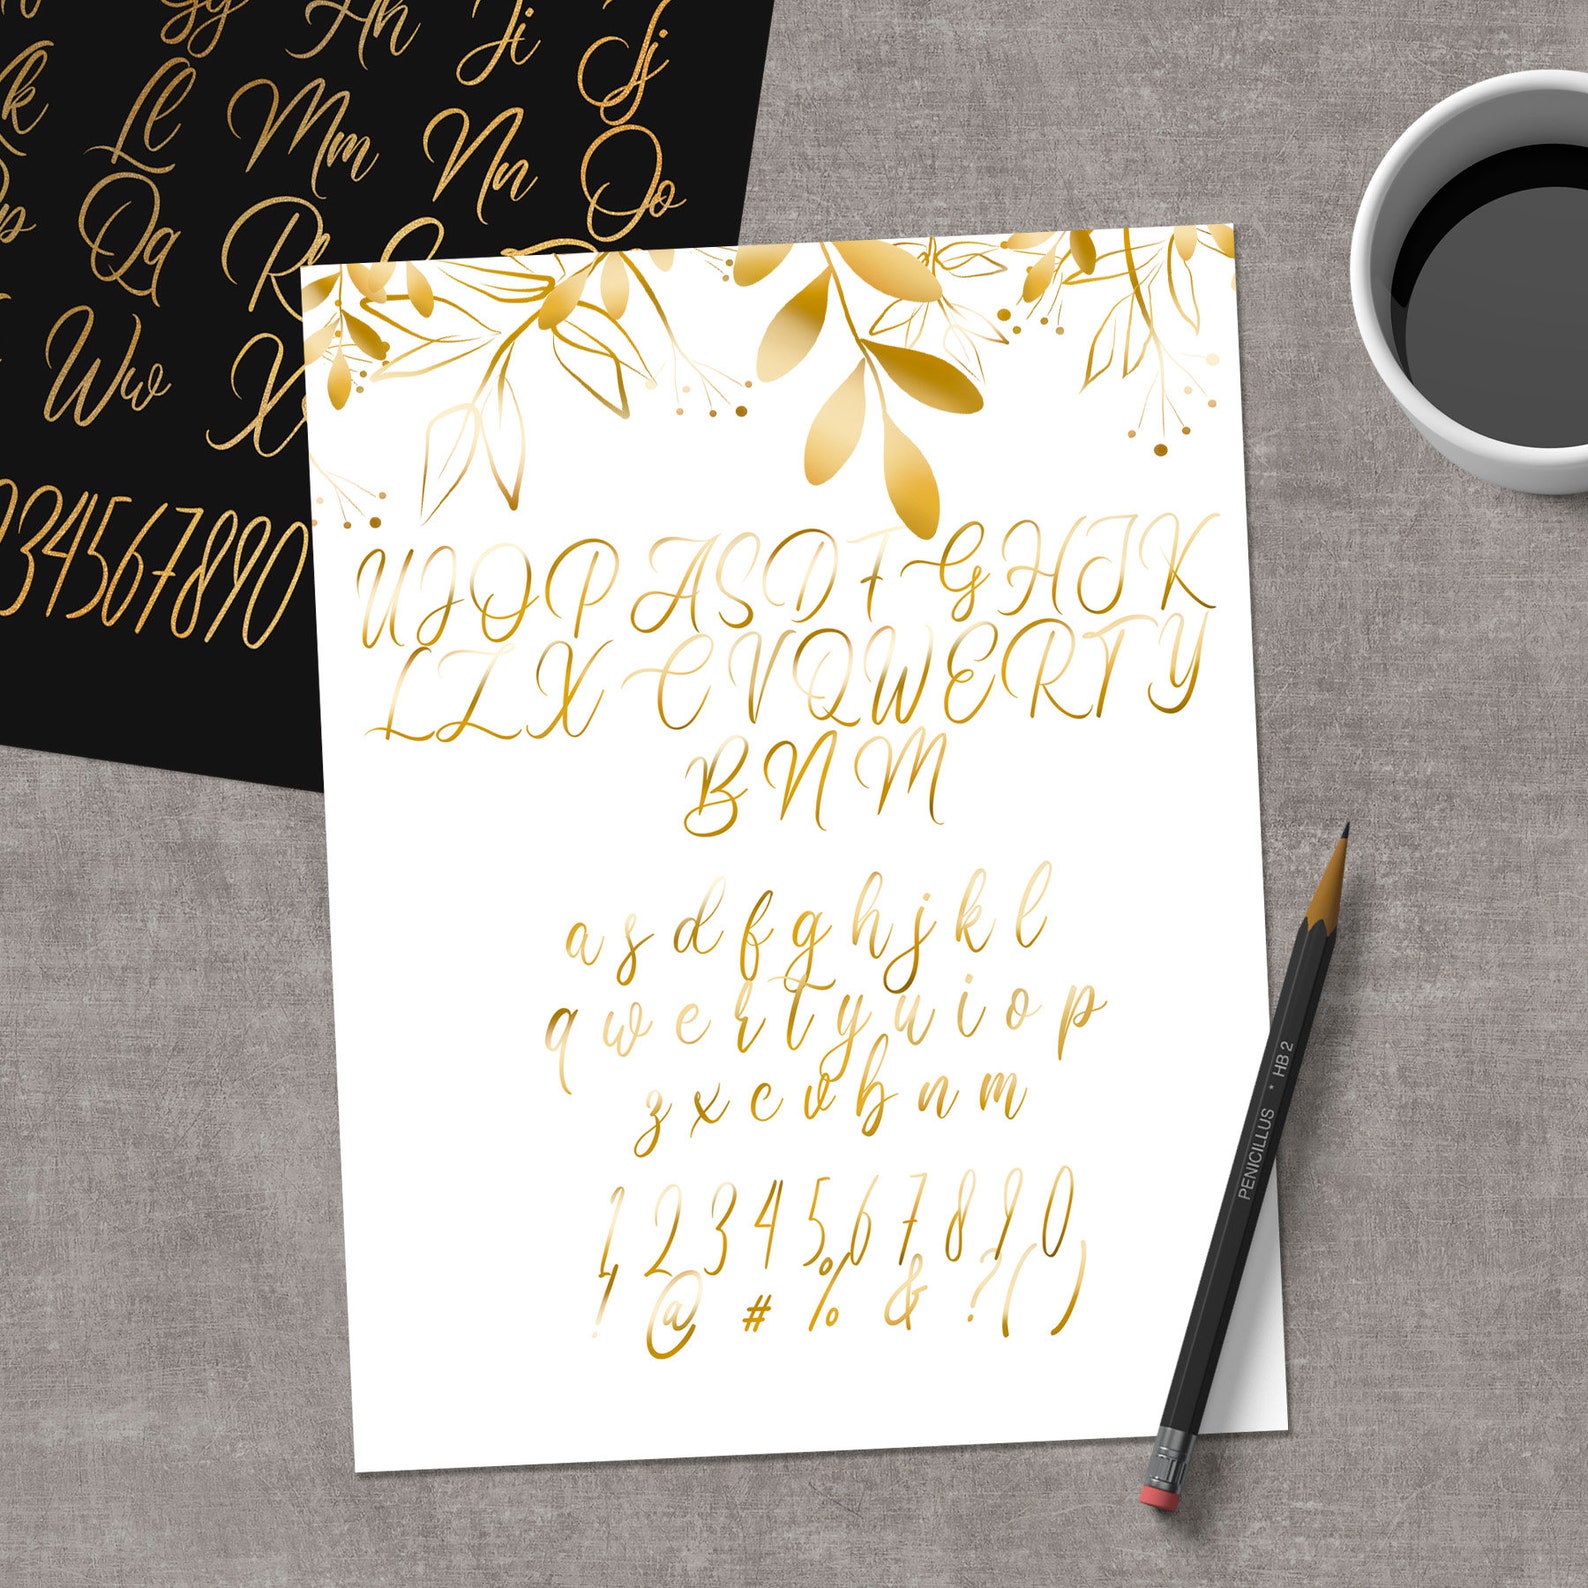 Gg Hh Ii Jj
k Ll Mm Nn Oo
p Qq R
Ww X
234567890
UIOPASDFGHJK
LZXCVQWERTY
BNM
asdfghjkl
qwertyuiop
zxcvbnm
1234567890
! @ # % & ? ( )
PENICILLUS * HB 2